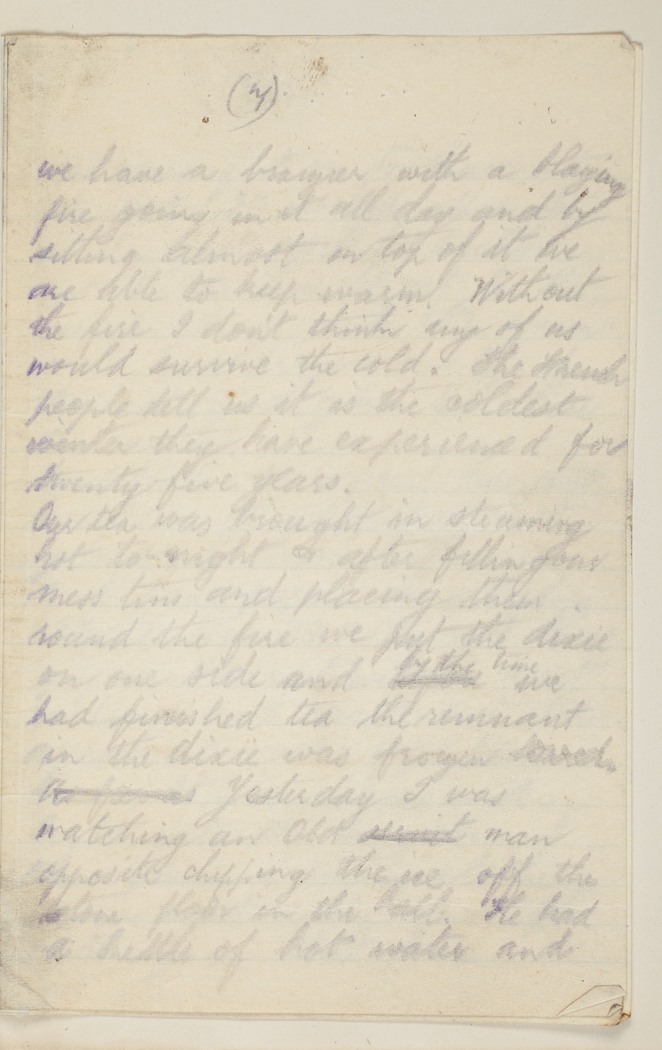 we have a brazier with a blazing
fire going in it all day and by
sitting almost on top of it we
are able to keep warm. Without
the fire I don't think any of us
would survive the cold. The French
people tell us it is the coldest
winter they have experienced for
twenty five years.
Our tea was brought in steaming
hot to-night & after filling our
mess tins and placing them
round the fire we put the dixie
on one side and by the time we
had finished tea the remnant
in the dixie was frozen
Yesterday I was
watching an old man
opposite chipping the ice off the
stone floor in the hall. He had
a kettle of hot water and